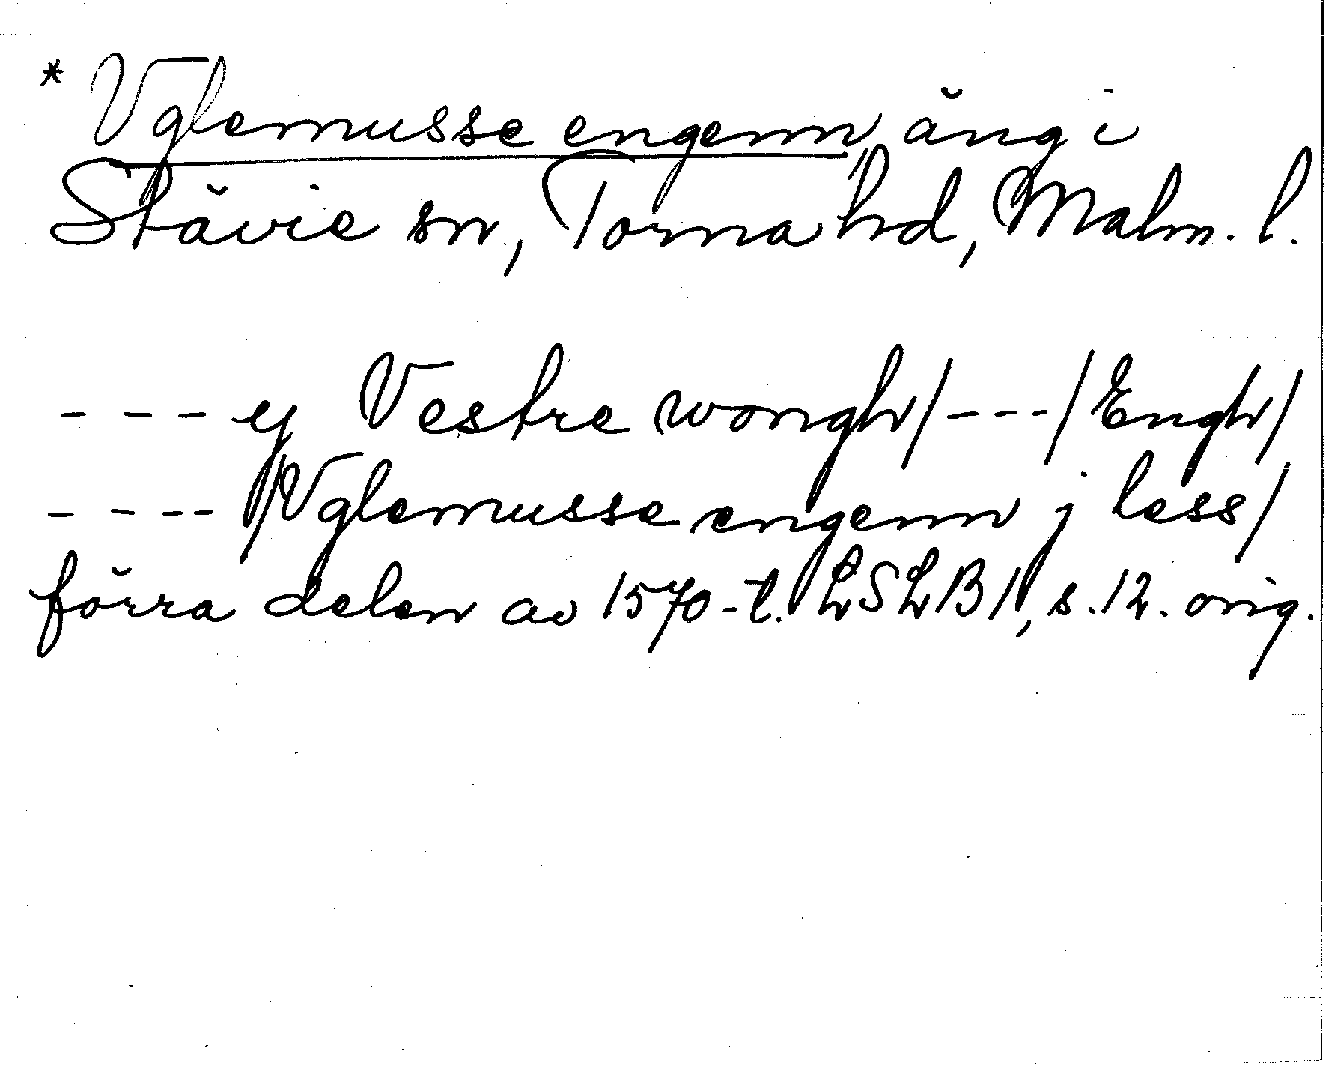 * Vglemusse engenn, äng i
Stävie sn, Torna hd, Malm. l.
- - - ej Vestre wongh/---/Engh/
- - - - /Vglemusse engenn j less/
förra delen av 1570-t. LSLB1, s.12. orig.